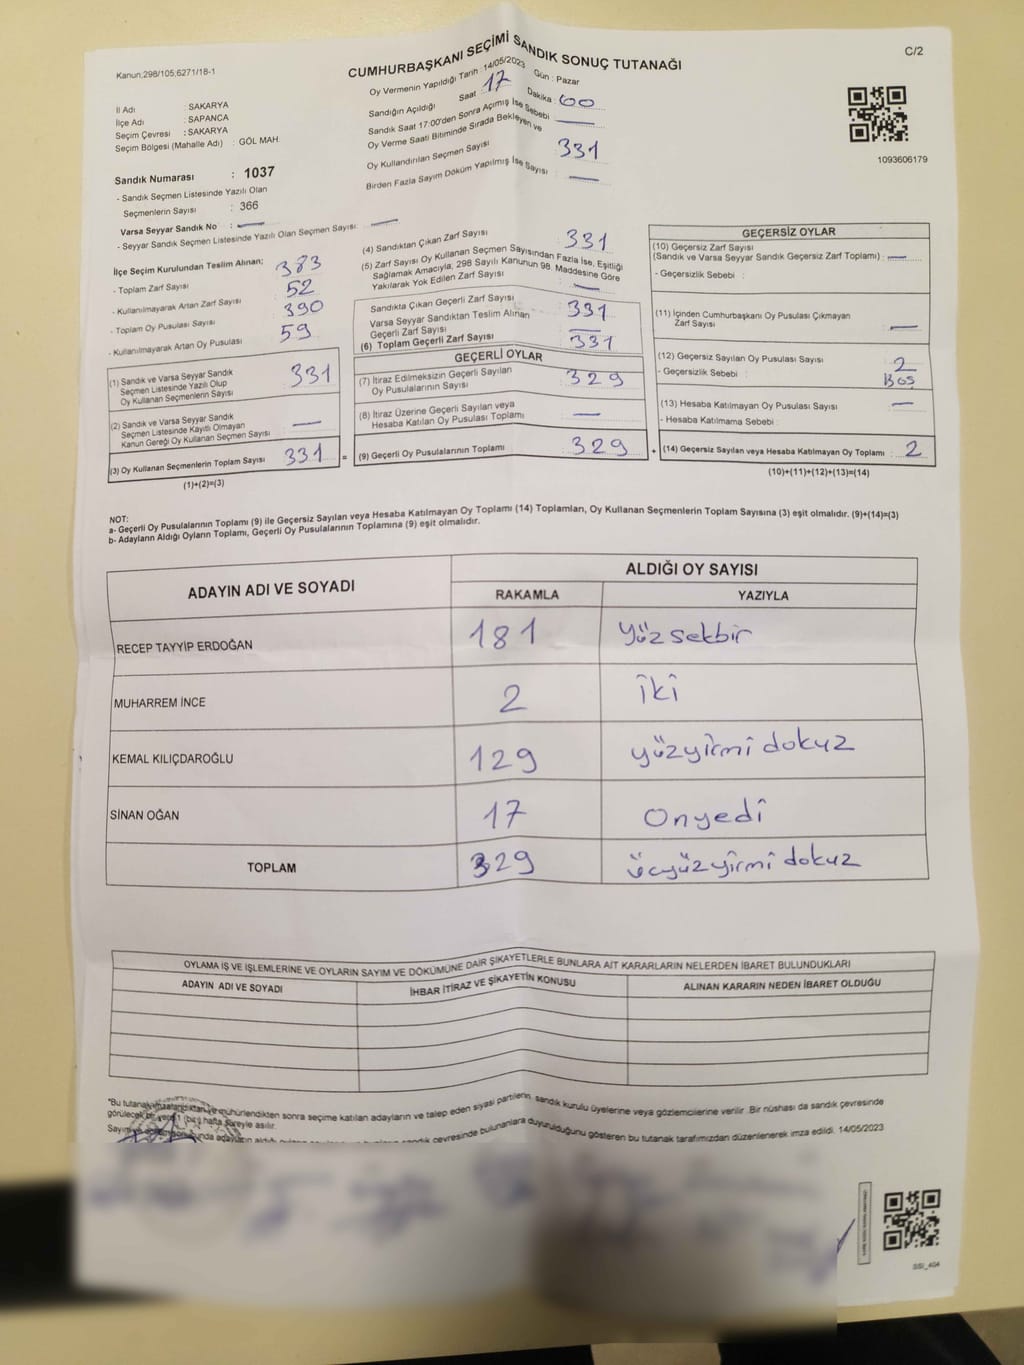 C/2
Kanun;298/105;6271/18-1
CUMHURBAŞKANI SEÇİMİ SANDIK SONUÇ TUTANAĞI
Oy Vermenin Yapıldığı Tarih : 14/05/2023 Gün : Pazar
Sandığın Açıldığı Saat 17 Dakika : 00
Sandık Saat 17:00'den Sonra Açımış İse Sebebi —
Oy Verme Saati Bitiminde Sırada Bekleyen ve
Oy Kullandırılan Seçmen Sayısı 331
Birden Fazla Sayım Döküm Yapılmış İse Sayısı —
İl Adı : SAKARYA
İlçe Adı : SAPANCA
Seçim Çevresi : SAKARYA
Seçim Bölgesi (Mahalle Adı) : GÖL MAH.
1093606179
Sandık Numarası : 1037
- Sandık Seçmen Listesinde Yazılı Olan
Seçmenlerin Sayısı : 366
Varsa Seyyar Sandık No : —
- Seyyar Sandık Seçmen Listesinde Yazılı Olan Seçmen Sayısı: —
İlçe Seçim Kurulundan Teslim Alınan;
- Toplam Zarf Sayısı 383
- Kullanılmayarak Artan Zarf Sayısı 52
- Toplam Oy Pusulası Sayısı 390
- Kullanılmayarak Artan Oy Pusulası 59
(1) Sandık ve Varsa Seyyar Sandık
Seçmen Listesinde Yazılı Olup
Oy Kullanan Seçmenlerin Sayısı 331
(2) Sandık ve Varsa Seyyar Sandık
Seçmen Listesinde Kayıtlı Olmayan
Kanun Gereği Oy Kullanan Seçmen Sayısı —
(3) Oy Kullanan Seçmenlerin Toplam Sayısı 331 =
(1)+(2)=(3)
(4) Sandıktan Çıkan Zarf Sayısı 331
(5) Zarf Sayısı Oy Kullanan Seçmen Sayısından Fazla İse, Eşitliği
Sağlamak Amacıyla, 298 Sayılı Kanunun 98. Maddesine Göre
Yakılarak Yok Edilen Zarf Sayısı —
Sandıkta Çıkan Geçerli Zarf Sayısı 331
Varsa Seyyar Sandıktan Teslim Alınan
Geçerli Zarf Sayısı —
(6) Toplam Geçerli Zarf Sayısı 331
GEÇERLİ OYLAR
(7) İtiraz Edilmeksizin Geçerli Sayılan
Oy Pusulalarının Sayısı 329
(8) İtiraz Üzerine Geçerli Sayılan veya
Hesaba Katılan Oy Pusulası Toplamı —
(9) Geçerli Oy Pusulalarının Toplamı 329 +
GEÇERSİZ OYLAR
(10) Geçersiz Zarf Sayısı
(Sandık ve Varsa Seyyar Sandık Geçersiz Zarf Toplamı) : —
- Geçersizlik Sebebi :
(11) İçinden Cumhurbaşkanı Oy Pusulası Çıkmayan
Zarf Sayısı —
(12) Geçersiz Sayılan Oy Pusulası Sayısı 2
- Geçersizlik Sebebi : BOŞ
(13) Hesaba Katılmayan Oy Pusulası Sayısı —
- Hesaba Katılmama Sebebi :
(14) Geçersiz Sayılan veya Hesaba Katılmayan Oy Toplamı : 2
(10)+(11)+(12)+(13)=(14)
NOT:
a- Geçerli Oy Pusulalarının Toplamı (9) ile Geçersiz Sayılan veya Hesaba Katılmayan Oy Toplamı (14) Toplamları, Oy Kullanan Seçmenlerin Toplam Sayısına (3) eşit olmalıdır. (9)+(14)=(3)
b- Adayların Aldığı Oyların Toplamı, Geçerli Oy Pusulalarının Toplamına (9) eşit olmalıdır.
ADAYIN ADI VE SOYADI ALDIĞI OY SAYISI
RAKAMLA YAZIYLA
RECEP TAYYİP ERDOĞAN 181 Yüzsekbir
MUHARREM İNCE 2 iki
KEMAL KILIÇDAROĞLU 129 yüzyirmi dokuz
SİNAN OĞAN 17 Onyedi
TOPLAM 329 üçyüzyirmi dokuz
OYLAMA İŞ VE İŞLEMLERİNE VE OYLARIN SAYIM VE DÖKÜMÜNE DAİR ŞİKAYETLERLE BUNLARA AİT KARARLARIN NELERDEN İBARET BULUNDUKLARI
ADAYIN ADI VE SOYADI İHBAR İTİRAZ VE ŞİKAYETİN KONUSU ALINAN KARARIN NEDEN İBARET OLDUĞU
*Bu tutanak mühürlendikten sonra seçime katılan adayların ve talep eden siyasi partilerin sandık kurulu üyelerine veya gözlemcilerine verilir .Bir nüshası da sandık çevresinde
görülecek bir yere 1 (bir) hafta süreyle asılır.
sandık çevresinde bulunanlara duyurulduğunu gösteren bu tutanak tarafımızdan düzenlenerek imza edildi. 14/05/2023
SSI_404